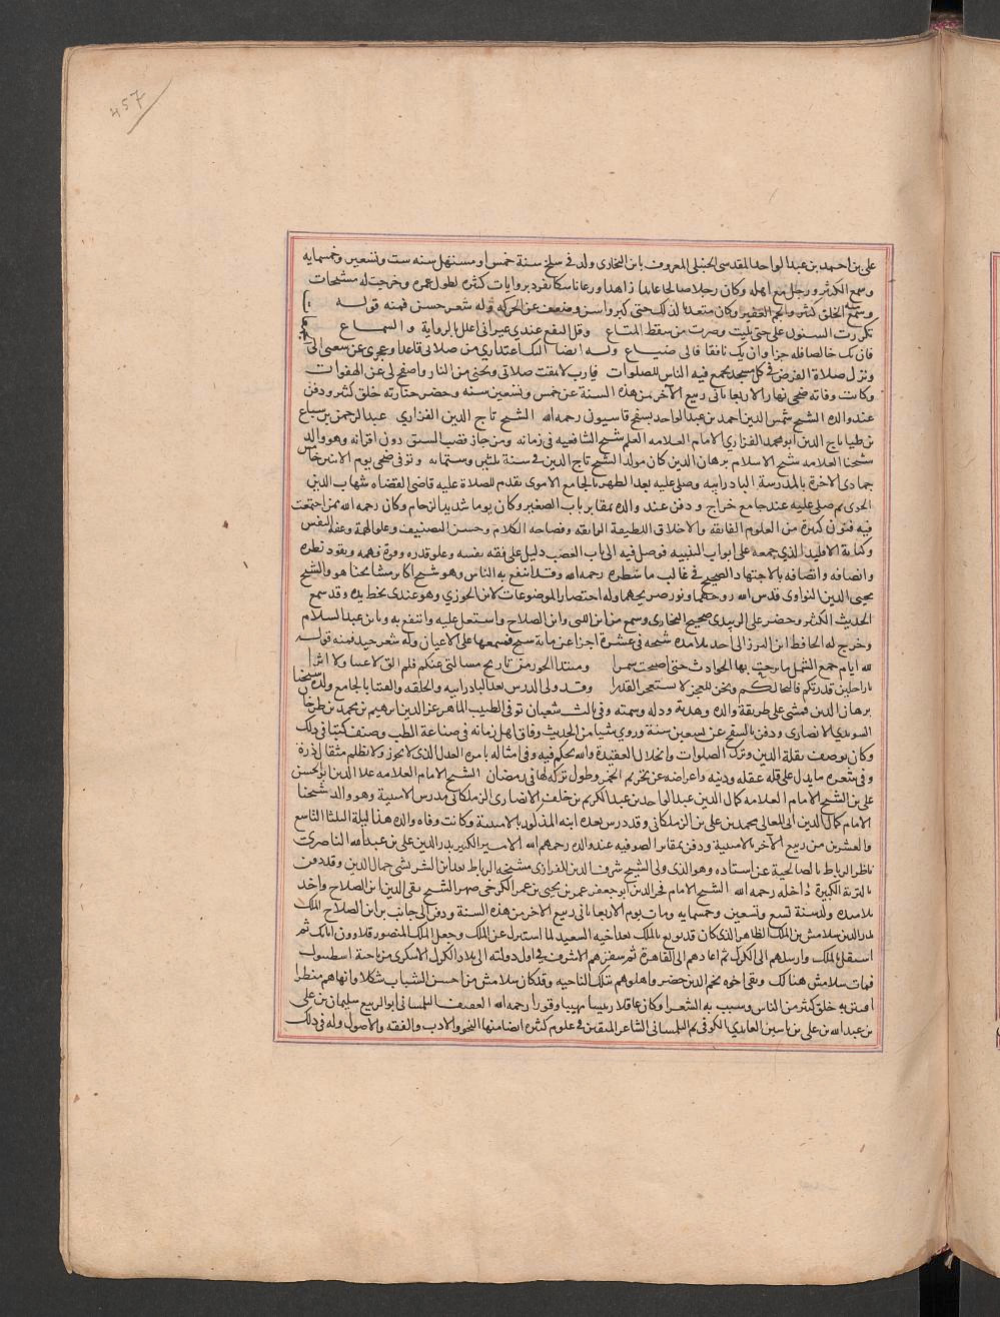 457
علي بن احمد بن عبد الواحد المقدسي الحنبلي المعروف بابن البخاري ولد في سلخ سنة خمس او مستهل سنه ست وتسعين وخمسمايه
وسمع الكثير ورحل مع اهله وكان رجلا صالحا عابدا زاهدا ورعا ناسكا تفرد بروايات كثيره لطول عمره وخرجت له مشيخات
وسمع الخلق الكثير والجم الغفير وكان متعدا لذلك حتى كبر واسن وضعف عن الحركه وله شعر حسن فمنه قوله
تكررت السنون علي حتى بليت وصرت من سقط المتاع وقل النفع عندي غير اني اعلل بالرواية والسماع
فان يك خالصا فله جزا وان يك نافقا فالى ضياع وله ايضا اليك اعتذاري من صلاتي قاعدا وعجزي عن سعيي الى
وتزل صلاة الفرض في كل مسجد تجمع فيه الناس للصلوات فيارب لا تمقت صلاتي ونجني من النار واصفح لي عن الهفوات
وكانت وفاته ضحى نهار الاربعا ثاني ربيع الآخر من هذه السنة عن خمس وتسعين سنه وحضر جنازته خلق كثير ودفن
عند والده الشيخ شمس الدين احمد بن عبد الواحد بسفح قاسيون رحمه الله الشيخ تاج الدين الفزاري عبد الرحمن بن سباع
بن ضيا تاج الدين ابو محمد الفزاري الامام العلامه العلم شيخ الشافعيه في زمانه ومن حاز قصب السبق دون اقرانه وهو والد
شيخنا العلامه شيخ الاسلام برهان الدين كان مولد الشيخ تاج الدين في سنة ثلثين وستمائه وتوفي ضحى يوم الاثنين خامس
جمادى الاخرة بالمدرسة البادرايه وصلي عليه بعد الظهر بالجامع الاموي تقدم للصلاة عليه قاضي القضاه شهاب الدين
الخوي ثم صلي عليه عند جامع جراح ودفن عند والده بمقابر باب الصغير وكان يوما شديد الزحام وكان رحمه الله ممن اجتمعت
فيه فنون كثيرة من العلوم الفايقه والاخلاق اللطيفة الرايقه وفصاحه الكلام وحسن التصنيف وعلو الهمة وفقه النفس
وكتابه الاقليد الذي جمعه على ابواب التنبيه فوصل فيه الى باب الغصب دليل على فقه نفسه وعلو قدره وقوة فهمه ونفوذ نظره
وانصافه واتصافه بالاجتهاد الصحيح في غالب ما سطره رحمه الله وقد انتفع به الناس وهو شيخ اكابر مشايخنا هو والشيخ
محيي الدين النواوي قدس الله روحهما ونور ضريحهما وله اختصار الموضوعات لابن الجوزي وهو عندي بخطه وقد سمع
الحديث الكثير وحضر على الزبيدي صحيح البخاري وسمع من ابن اللتي وابن الصلاح واشتغل عليه وانتفع به وبابن عبد السلام
وخرج له الحافظ ابن البرزالي احد تلامذه شيخه في عشره اجزا عن مايه شيخ فسمعها على الاعيان وله شعر جيد فمنه قوله
لله ايام جمع الشمل ما برحت بها الحوادث حتى اصبحت سمرا ومبتدا الحزن من تاريخ مسالتي عنكم فلم الق لا عينا ولا اثرا
يا راحلين قدرتم فالنجا لكم ونحن للعجز لا نستعجز القدرا وقد ولي الدرس بعده بالبادرايه والحلقه والفتيا بالجامع ولده شيخنا
برهان الدين فمشى على طريقة والده وهديه ودله وسمته وفي ثالث شعبان توفي الطبيب الماهر عز الدين ابرهيم بن محمد بن طرخان
السويدي الانصاري ودفن بالسفح عن تسعين سنة وروى شيا من الحديث وفاق اهل زمانه في صناعة الطب وصنف كتبا في ذلك
وكان يوصف بقلة الدين وترك الصلوات وانحلال العقيدة والله يحكم فيه وفي امثاله بامره العدل الذي لا يجوز ولا يظلم مثقال ذرة
وفي شعره مايدل على قله عقله ودينه واعراضه عن تحريم الخمر وطول تركه لها في رمضان الشيخ الامام العلامه علا الدين ابو الحسن
علي بن الشيخ الامام العلامه كمال الدين عبد الواحد بن عبد الكريم بن خلف الانصاري الزملكاني مدرس الامينية وهو والد شيخنا
الامام كمال الدين ابي المعالي محمد بن علي بن الزملكاني وقد درس بعده ابنه المذكور بالامينية وكانت وفاة والده هذا ليلة الثلثا التاسع
والعشرين من ربيع الآخر بالامينية ودفن بمقابر الصوفيه عند والده رحمهم الله الامير الكبير بدر الدين علي بن عبد الله الناصري
ناظر الرباط بالصالحية عن استاده وهو الذي ولى الشيخ شرف الدين الفزاري مشيخه الرباط بعد ابن الشريشي جمال الدين وقد دفن
بالتربة الكبيرة داخله رحمه الله الشيخ الامام فخر الدين ابو جعفر عمر بن يحيى بن عمر الكرخي صهر الشيخ تقي الدين ابن الصلاح واحد
تلامذه ولد سنة تسع وتسعين وخمسمايه ومات يوم الاربعا ثاني ربيع الآخر من هذه السنة ودفن الى جانب بن الصلاح الملك
بدر الدين سلامش بن الملك الظاهر الذي كان قد بويع بالملك بعد اخيه السعيد لما استنزل عن الملك وجعل الملك المنصور قلاوون اتابك ثم
استقل بالملك وارسلهم الى الكرك ثم اعادهم الى القاهرة ثم سفرهم الاشرف في اول دولته الى بلاد الاشكري من ناحية اسطنبول
فمات سلامش هنالك وبقي اخوه نجم الدين خضر واهلوهم بتلك الناحيه وقد كان سلامش من احسن الشباب شكلا وابهاهم منظرا
افتتن به خلق كثير من الناس وشبب به الشعرا وكان عاقلا رئيسا مهيبا وقورا رحمه الله العفيف التلمساني ابو الربيع سليمان بن علي
بن عبد الله بن علي بن ياسين العابدي الكوفي ثم التلمساني الشاعر المتقن في علوم كثيره ايضا منها النحو والادب والفقه والاصول وله في ذلك